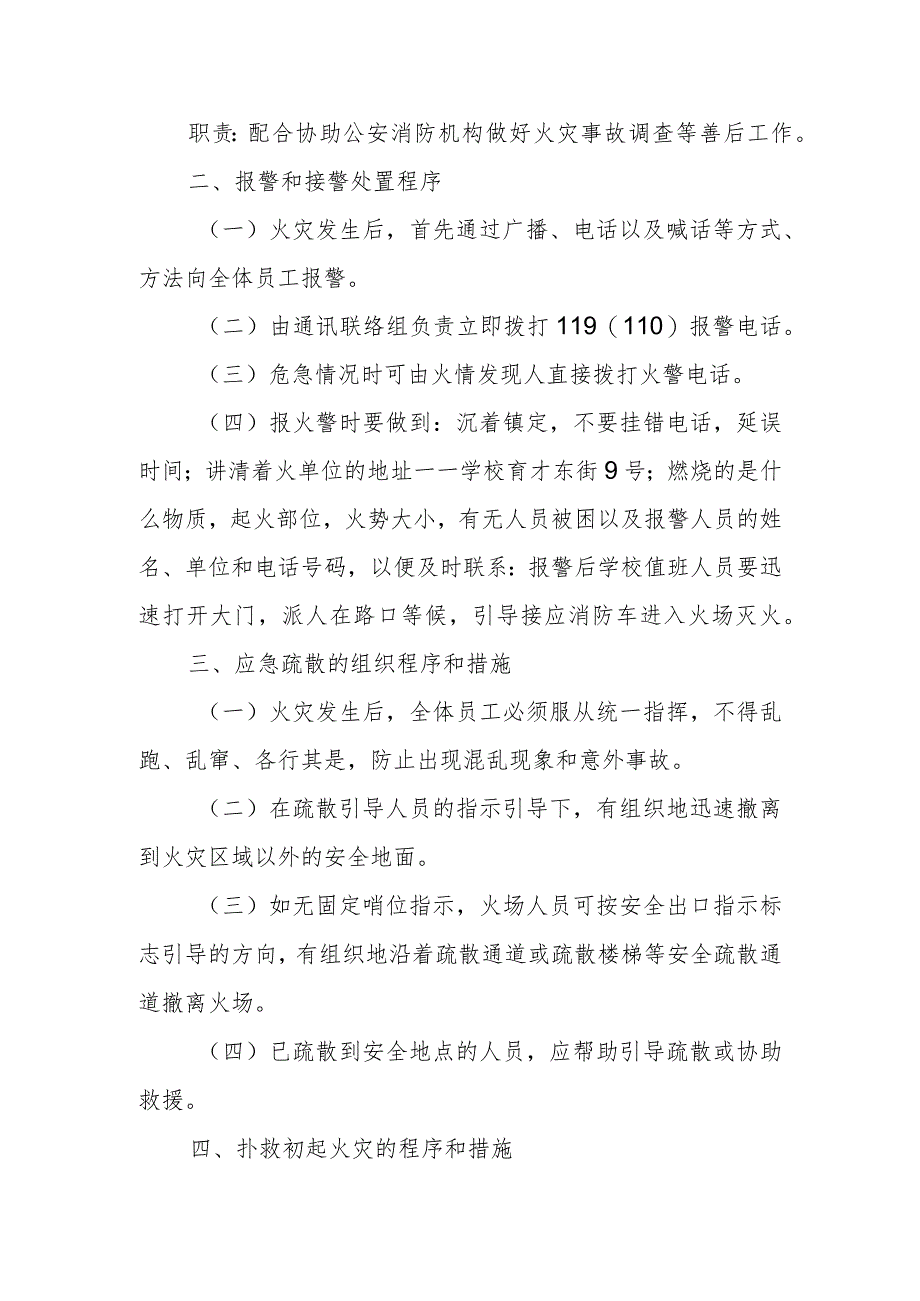 职责：配合协助公安消防机构做好火灾事故调查等善后工作。
二、报警和接警处置程序
（一）火灾发生后，首先通过广播、电话以及喊话等方式、
方法向全体员工报警。
（二）由通讯联络组负责立即拨打 119（110）报警电话。
（三）危急情况时可由火情发现人直接拨打火警电话。
（四）报火警时要做到：沉着镇定，不要挂错电话，延误
时间；讲清着火单位的地址一一学校育才东街 9 号；燃烧的是什
么物质，起火部位，火势大小，有无人员被困以及报警人员的姓
名、单位和电话号码，以便及时联系：报警后学校值班人员要迅
速打开大门，派人在路口等候，引导接应消防车进入火场灭火。
三、应急疏散的组织程序和措施
（一）火灾发生后，全体员工必须服从统一指挥，不得乱
跑、乱窜、各行其是，防止出现混乱现象和意外事故。
（二）在疏散引导人员的指示引导下，有组织地迅速撤离
到火灾区域以外的安全地面。
（三）如无固定哨位指示，火场人员可按安全出口指示标
志引导的方向，有组织地沿着疏散通道或疏散楼梯等安全疏散通
道撤离火场。
（四）已疏散到安全地点的人员，应帮助引导疏散或协助
救援。
四、扑救初起火灾的程序和措施